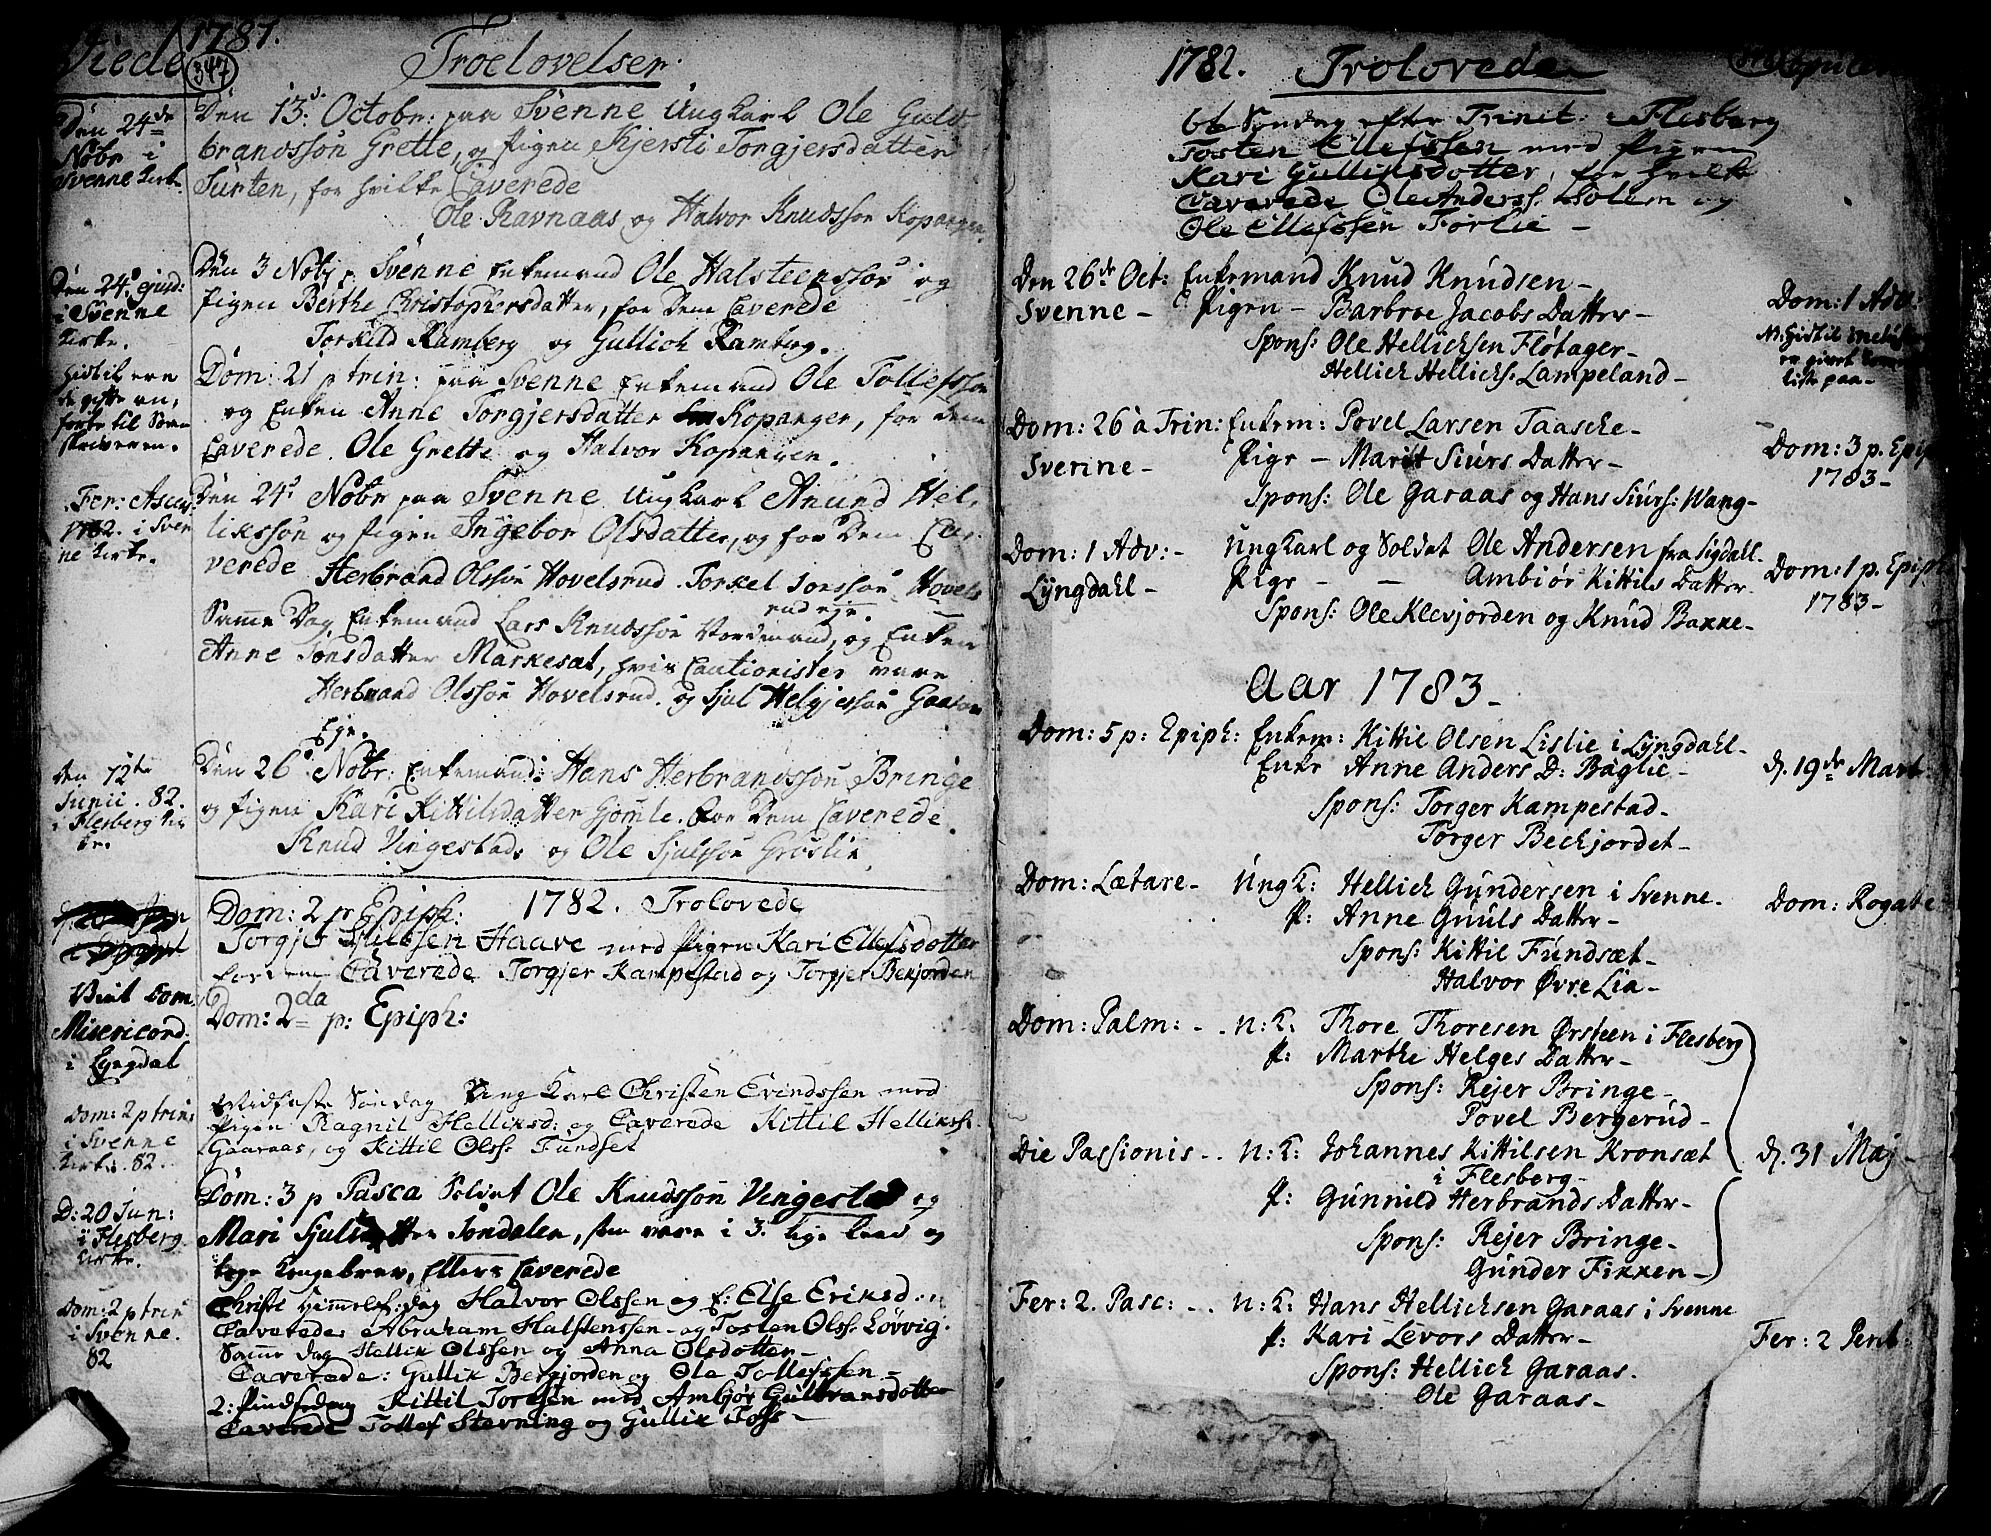 Viede 1781.
347
Troelovelser.
Den 24de
Nobr i
Svenne Kirke.
Den 13d. Octobr: paa Svenne Ungkarl Ole Guld
brandssön Grette, og Pigen Kjersti Torgjersdatter
Surten, for hvilke Caverede
Ole Ravnaas og Halvor Knudssön Kopangen.
Den 24d ejusd:
i Svenne
Kirke.
Den 3 Nobr p. Svenne Enkemand Ole Halsteenssön og
Pigen Berthe Christophersdatter, for dem Caverede
Torkild Ramberg og Gullich Ramberg.
Dom: 21 p trin: paa Svenne Enkemand Ole Tollefssön
og Enken Anne Torgjersdatter Kopanger, for dem
Caverede Ole Grette og Halvor Kopangen.
Fer: Ascens
1782. i Sven
ne Kirke.
Den 24d Nobr paa Svenne Ungkarl Anund Hel-
likssön og Pigen Ingebor Olsdatter, og for dem Ca-
verede Herbrand Olssön Hovelsrud. Torkel Jonssön Hovels
rud eje.
Samme Dag Enkemand Lars Knudssön Vordmand, og Enken
Anne Jonsdatter Markesat, hvis Cautionister vare
Herbrand Olssön Hovelsrud. og Sjul Helgjessön Gaatom
Eje.
Den 12te
Junii. 82.
i Flesberg Kir
ke.
Den 26d Nobr: Enkemand: Hans Herbrandssön Bringe
og Pigen Kari Kittilsdatter Gjomle. For dem Caverede
Knud Vingestad og Ole Sjulssön Gröslie.
1782. Trolovede
Dom: 2 p Epiph:
Torgjer Haave med Pigen Kari Ellefsdotter
for dem Caverede Torgjer Kampestad og Torgjer Bekjorden
Dom: 2da p: Epiph:
Viet Dom
Misericord.
i Lyngdal
Midfaste Söndag Ung Karl Christen Evindssen med
Pigen Ragnil Helliksd: og Caverede Kittil Helliks:
Gaaraas, og Kittil Olss: Fundset
Dom: 2 p trin:
i Svenne
Kirke. 82.
Dom: 3 p Pasca Soldat Ole Knudssön Vingestad og
Mari Söndalen, som vare i 3. lige leed og
Kongebrev, Ellers Caverede
D: 20 Jun:
i Flesberg
Kirke.
Christi Himmelf: dag Halvor Olssen og P: Else Eriksd.
Caverede: Abraham Halstenssen og Tosten Olss: Lövvig.
Samme dag Hellik Olssen og Anna Olsdotter
Caverede: Gullik Bergjorden og Ole Tollefssen
Dom: 2 p trin
i Svenne.
82
2: Pindsedag Kittil Torssen med Ambjör Gulbransdotter
Caverede Tollef Stevning og Gullik Foss
1782. Trolovede
6te Söndag efter Trinit: i Flesberg
Tosten Ellefssen med Pigen
Kari Gulliksdotter, for hvilke
Caverede Ole Anderss. Holem og
Ole Ellefssen Förlie
Den 26de Oct: Enkemand Knud Knudsen
Svenne - Pigen - Barbroe Jacobs Datter
Spons: Ole Hellichsen Flötager
Hellich Hellichs: Lampeland
Dom: 1 Adv:
Dom: 26 à Trin: Enkem: Povel Larsen Taasche
Svenne - Pige - Marit Siurs Datter
Spons: Ole Garaas og Hans Siurs: Wang
Dom: 3 p. Epip
1783
Dom: 1 Adv: Ungkarl og Soldat Ole Andersen fra Sigdahl
Lÿngdahl Pige - Ambiör Kittils Datter
Spons: Ole Klevjorden og Knud Bakke
Dom: 1 p. Epiph
1783
Aar 1783
Dom: 5 p: Epiph: Enkem: Kittil Olsen Lislie i Lÿngdahl
Enke Anne Anders D: Baglie
Spons: Torger Kampestad
Torger Bechjordet
d. 19de Mart
Dom: Lætare Ungk: Hellich Gundersen i Svenne
P: Anne Gnuls Datter
Spons: Kittil Fundsæt
Halvor Øvre Lia
Dom: Rogate
Dom: Palm: - - U: K: Thore Thoresen Ørsteen i Flesberg
P: Marthe Helges Datter
Spons: Rejer Bringe
Povel Bergerud
Die Passionis - - U: K: Johannes Kittilsen Kronsæt
i Flesberg
P: Gunnild Herbrands Datter
Spons: Rejer Bringe
Gunder Fikken
d. 31 Maj
Fer: 2. Pasc: - - U: K: Hans Hellichsen Garaas i Svenne
P: Kari Levors Datter
Spons: Hellich Garaas.
Ole Garaas
Fer: 2 Pent: